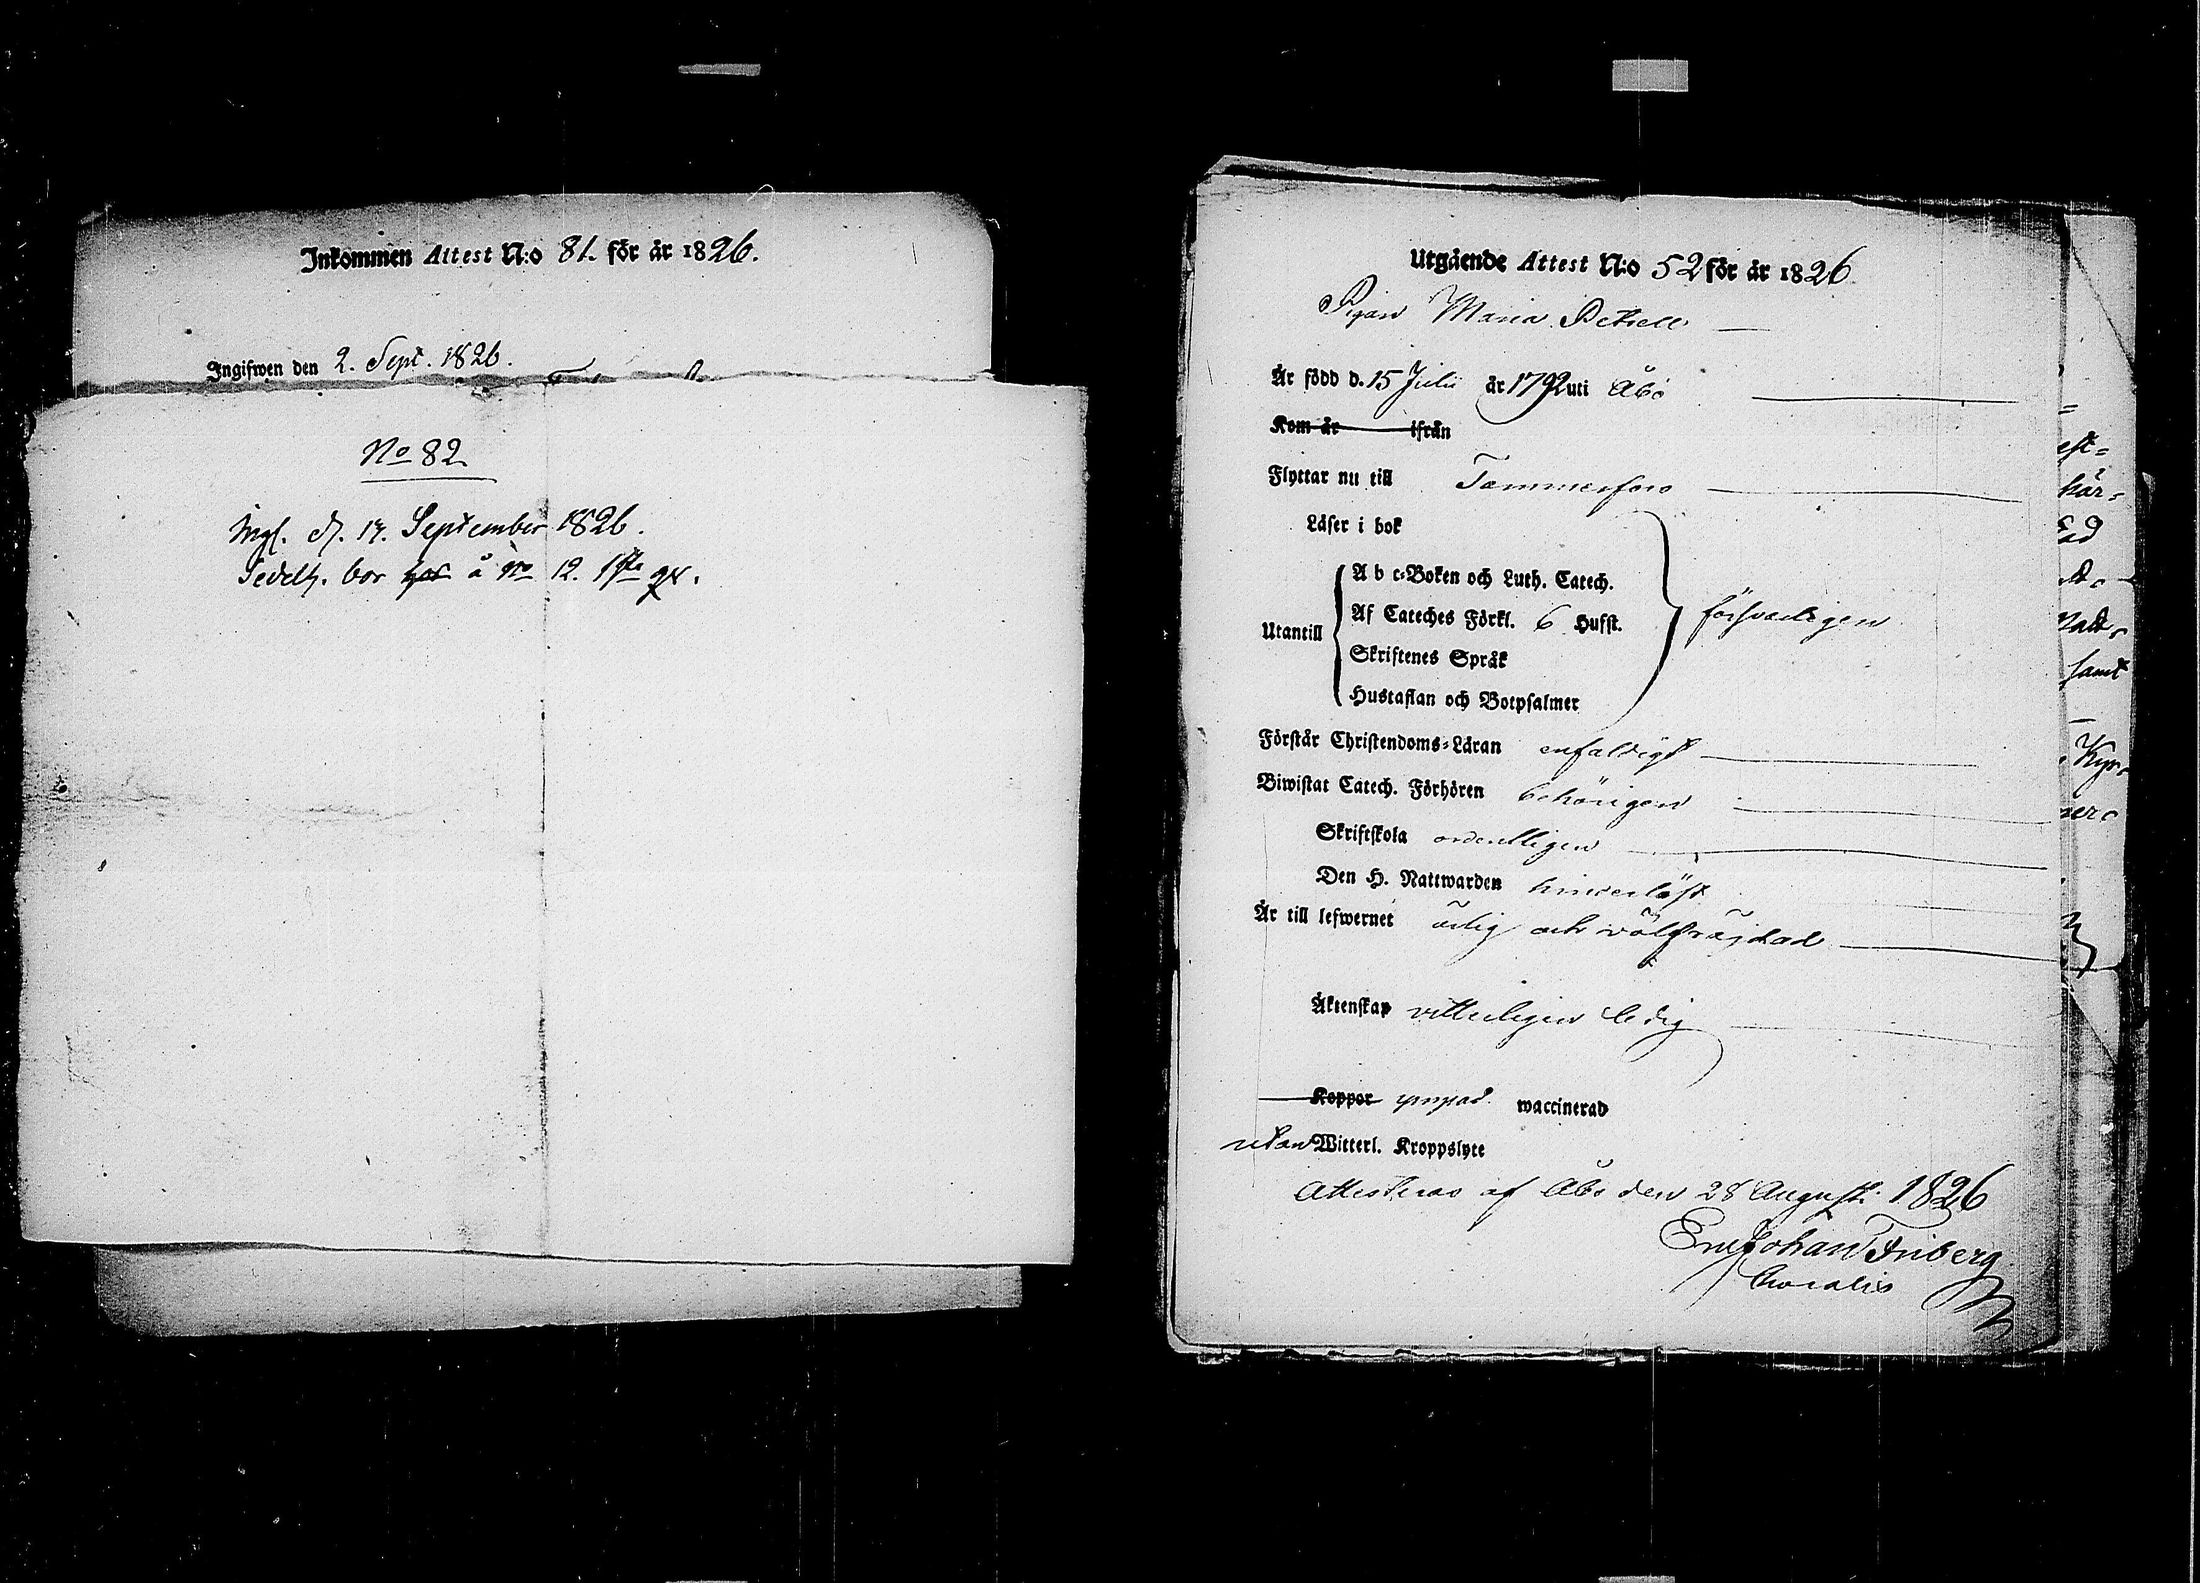 Inkommen Attest N:o 81. för år 1826.
Ingifwen den 2. Sept. 1826.
No 82
Ingf. d. 17. September 1826.
Sedelh. bor å No 12. 1sta qv.
Utgående Attest N:o 52 för år 1826
Pigan Maria Petrell
Är född d. 15 Julii år 1792 uti Åbo
Kom år ifrån
Flyttar nu till Tammerfors
Läser i bok
A b c-Boken och Luth. Catech.
Utantill Af Cateches Förkl. 6 Hufst. försvarligen
Skriftenes Språk
Hustaflan och Botpsalmer
Förstår Christendoms-Läran enfaldigt
Biwistat Catech. Förhören behörigen
Skriftskola ordentligen
Den H. Nattwarden hinderlöst
Är till lefwernet ärlig och välfräjdad
Äktenskap vitterligen ledig
Koppor ympad. waccinerad
utan Witterl. Kroppslyte
Attesteras af Åbo den 28 Augusti 1826
Eric Johan Friberg
est=
här=
samt
Kyr=